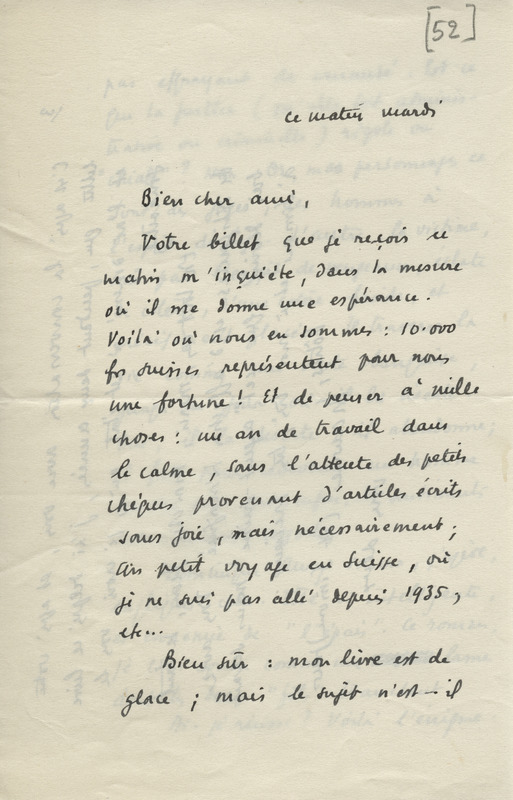 [52]
ce matin mardi
Bien cher ami,
Votre billet que je reçois ce
matin m'inquiète, dans la mesure
où il me donne une espérance.
Voilà où nous en sommes : 10.000
frs suisses représentent pour nous
une fortune ! Et de penser à mille
choses : un an de travail dans
le calme, sans l'attente des petits
chèques provenant d'articles écrits
sans joie, mais nécessairement ;
un petit voyage en Suisse, où
je ne suis pas allé depuis 1935,
etc...
Bien sûr : mon livre est de
glace ; mais le sujet n'est-il